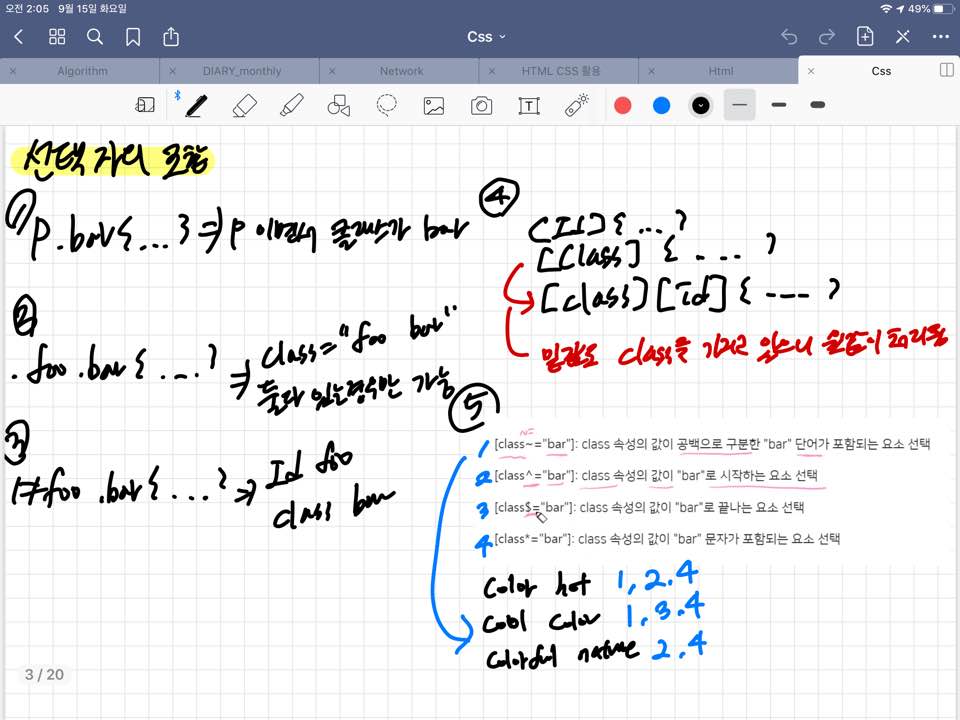 오전 2:05 9월 15일 화요일 49%
Css
Algorithm DIARY_monthly Network HTML CSS 활용 Html Css
선택자의 조합
①
p.bar{...} ⇒ p 이면서 클래스가 bar
②
.foo.bar{...} ⇒ class="foo bar"
둘다 있는경우만 가능
③
#foo.bar{...} ⇒ Id foo
class bar
④
[Id]{...}
[Class]{....}
[class][Id]{---}
class를 가지고 있으니
⑤
1 [class~="bar"]: class 속성의 값이 공백으로 구분한 "bar" 단어가 포함되는 요소 선택
2 [class^="bar"]: class 속성의 값이 "bar"로 시작하는 요소 선택
3 [class$="bar"]: class 속성의 값이 "bar"로 끝나는 요소 선택
4 [class*="bar"]: class 속성의 값이 "bar" 문자가 포함되는 요소 선택
Color hot 1,2.4
Cool color 1,3.4
Colorful nature 2.4
3 / 20